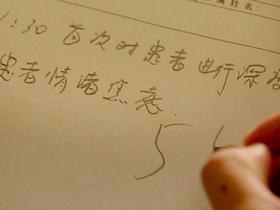 姓名:
1:30 首次对患者进行深
患者情绪焦虑.
5